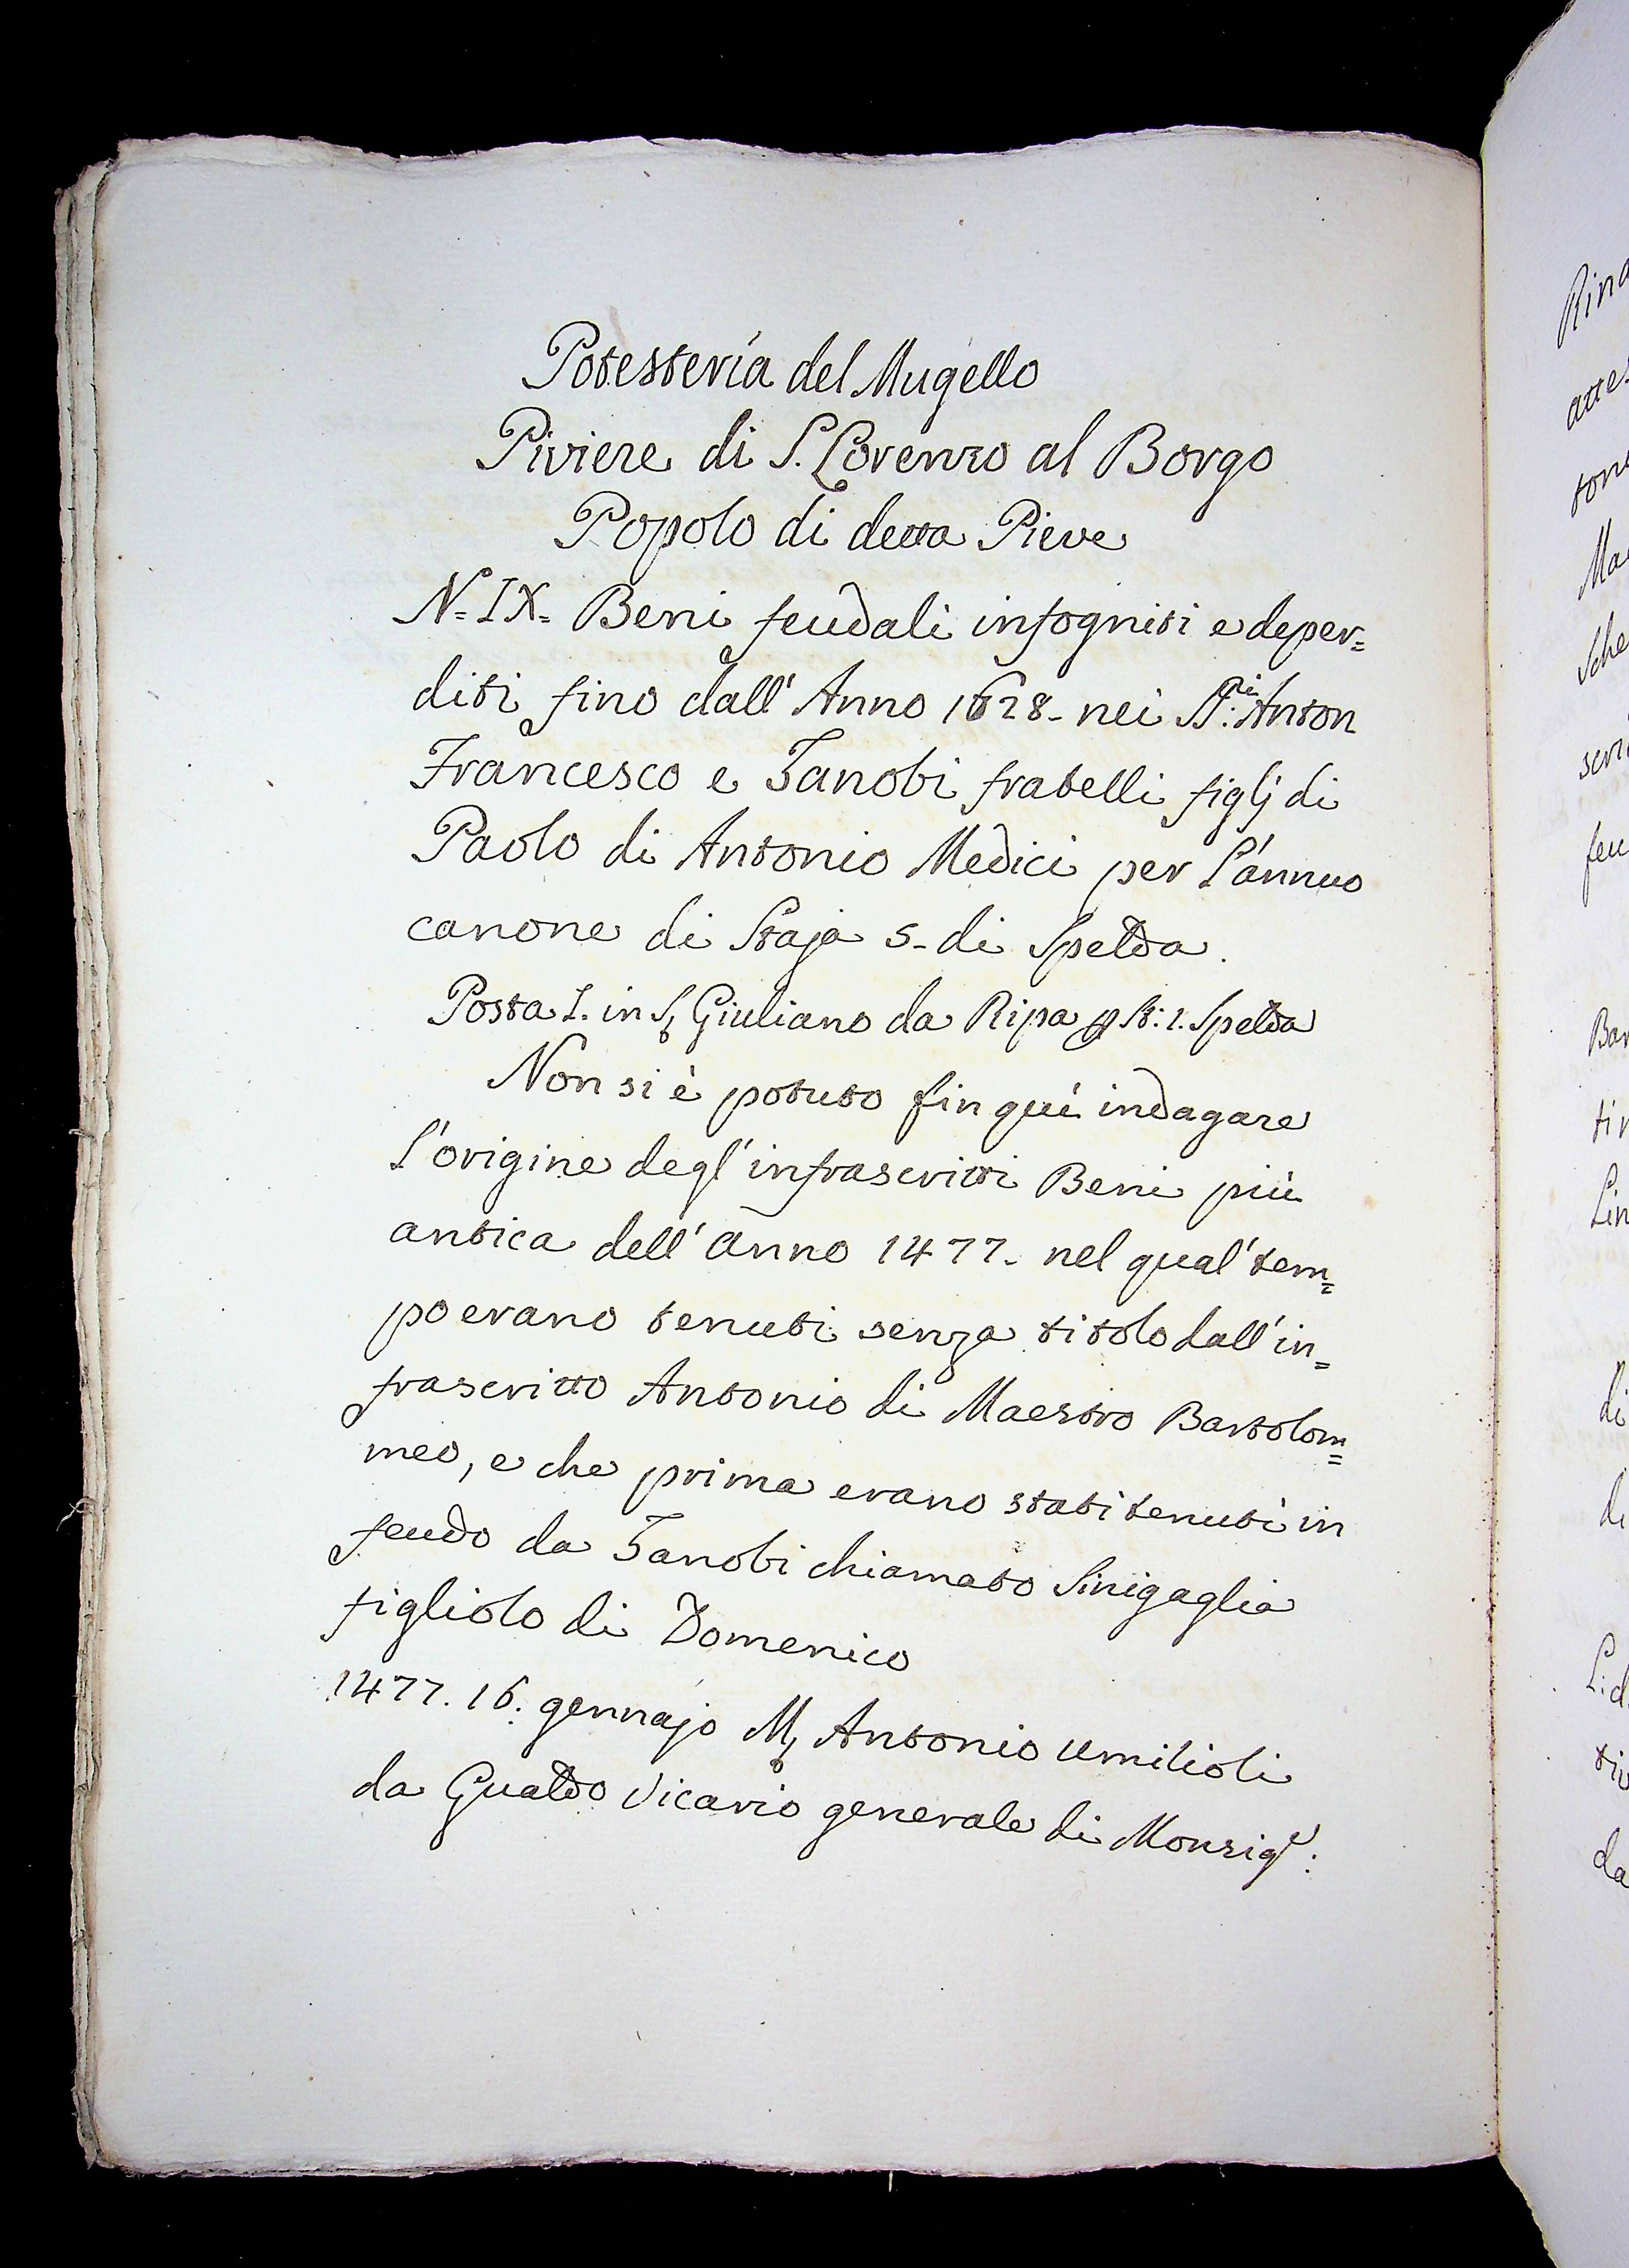 Potesteria del Mugello
Piviere di S. Lorenzo al Borgo
Popolo di detta Pieve
N. IX. Beni feudali infogniti e deper=
diti fino dall' Anno 1628. nei SS.ri Anton
Francesco e Zanobi fratelli figlj di
Paolo di Antonio Medici per l'annuo
canone di Staja 5. di Spelda.
Posta I. in S. Giuliano da Ripa p St: 1. Spelda
Non si è potuto fin quì indagare
l'origine degl'infrascritti Beni più
antica dell'anno 1477. nel qual' tem=
po erano tenuti senza titolo dall'in=
frascritto Antonio di Maestro Bartolom=
meo, e che prima erano stati tenuti in
feudo da Zanobi chiamato Sinigaglia
figliolo di Domenico
1477. 16. gennajo M. Antonio Umilioli
da Gualdo Vicario generale di Monsigr: